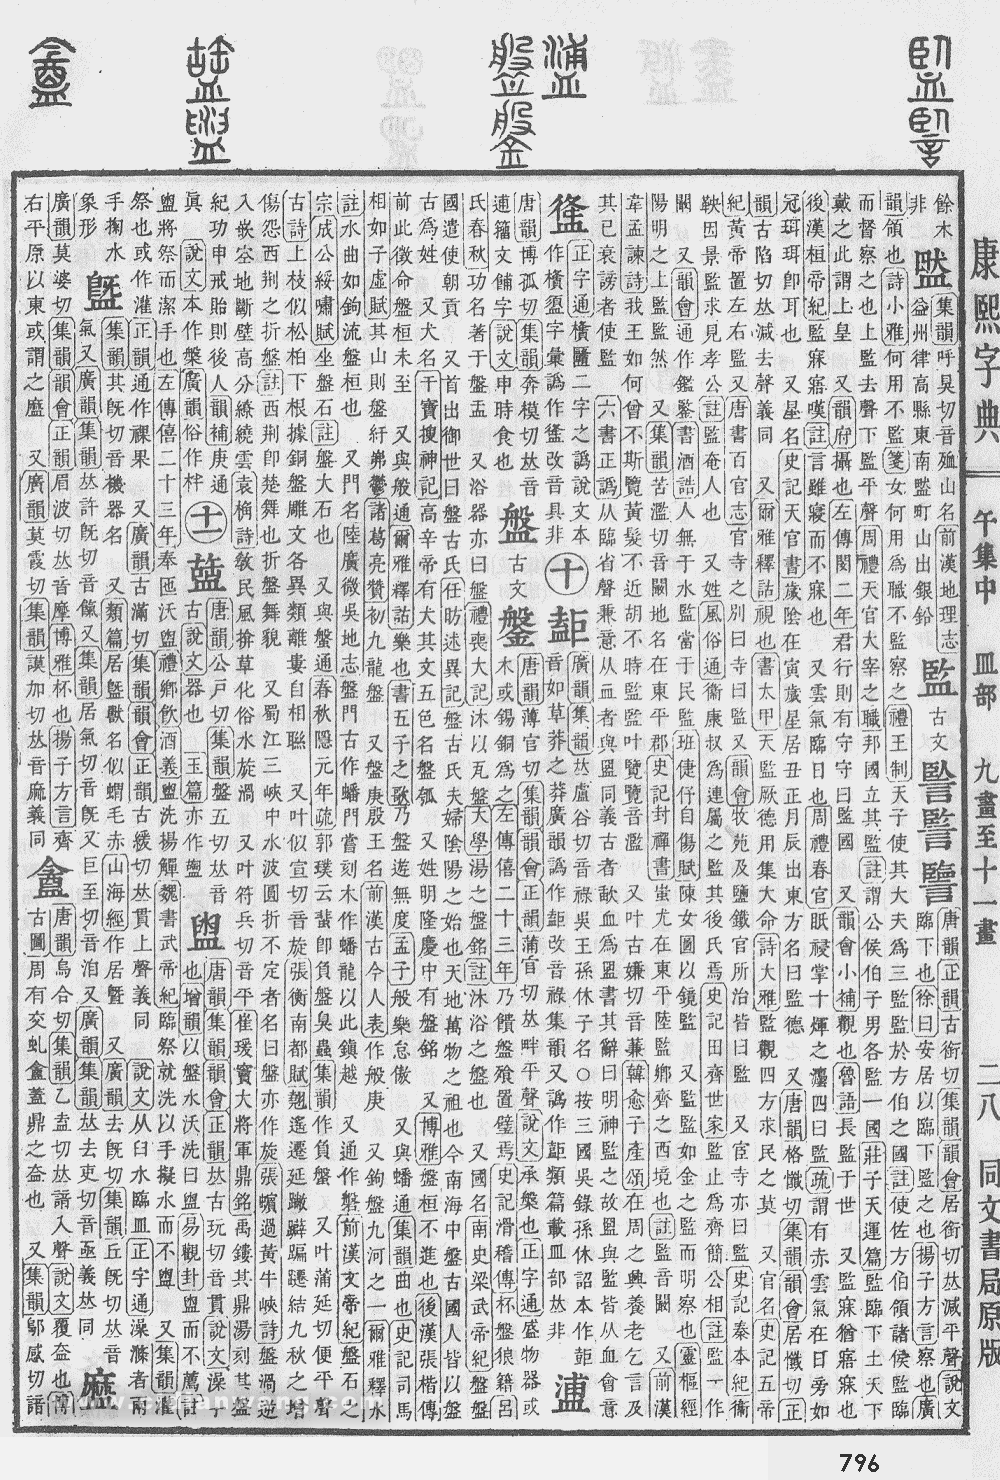 康熙字典 午集中 皿部 九畫至十一畫 二八 同文書局原版
餘木
非
集韻呼昊切音殈山名前漢地理志
益州律高縣東南䀍町山出銀鉛
監
古文
唐韻正韻古銜切集韻韻會居銜切𠀤減平聲說文
臨下也徐曰安居以臨下監之也揚子方言察也廣
韻領也詩小雅何用不監箋女何用爲職不監察之禮王制天子使其大夫爲三監監於方伯之國註使佐方伯領諸侯監臨
而督察之也上監去聲下監平聲周禮天官大宰之職邦國立其監註謂公侯伯子男各監一國莊子天運篇監臨下土天下
戴之此謂上皇 又韻府攝也左傳閔二年君行則有守守曰監國 又韻會小補觀也晉語長監于世 又監寐猶寤寐也
後漢桓帝紀監寐寤嘆註言雖寢而不寐也 又雲氣臨日也周禮春官眡祲掌十煇之灋四曰監疏謂有赤雲氣在日旁如
冠珥珥卽耳也 又星名史記天官書歲陰在寅歲星居丑正月辰出東方名曰監德 又唐韻格懺切集韻韻會居懺切正
韻古陷切𠀤減去聲義同 又爾雅釋詁視也書太甲天監厥德用集大命詩大雅監觀四方求民之莫 又官名史記五帝
紀黃帝置左右監又唐書百官志官寺之別曰寺曰監又韻會牧苑及鹽鐵官所治皆曰監 又官寺亦曰監史記秦本紀衞
鞅因景監求見孝公註監奄人也 又姓風俗通衞康叔爲連屬之監其後氏焉史記田齊世家監止爲齊簡公相註監一作
闞 又韻會通作鑑鑒書酒誥人無于水監當于民監班倢伃自傷賦陳女圖以鏡監 又監如金之監而明察也靈樞經
陽明之上監監然 又集韻苦濫切音闞地名在東平郡史記封禪書蚩尤在東平陸監鄉齊之西境也註監音闞 又前漢
韋孟諫詩我王如何曾不斯覽黃髮不近胡不時監監叶覽覽音濫 又叶古嫌切音蒹韓愈子產頌在周之興養老乞言及
其已衰謗者使監 六書正譌从臨省聲兼意从血者與盟同義古者歃血爲盟書其辭曰明神監之故盟與監皆从血會意
正字通橫𥂖二字之譌說文本
作橫𢀜字彙譌作𥁞改音具非
十
廣韻集韻𠀤盧谷切音祿吳王孫休子名○按三國吳錄孫休詔本作䀡
音如草莽之莽廣韻譌作䀡改音祿集韻又譌作䀡類篇載皿部𠀤非
盙
唐韻博孤切集韻奔模切𠀤音
逋籀文餔字說文申時食也
盤
古文
鎜
唐韻薄官切集韻韻會正韻蒲官切𠀤畔平聲說文承槃也正字通盛物器或
木或錫銅爲之左傳僖二十三年乃饋盤飧置璧焉史記滑稽傳杯盤狼籍呂
氏春秋功名著于盤盂 又浴器亦曰盤禮喪大記沐以瓦盤大學湯之盤銘註沐浴之盤也 又國名南史梁武帝紀盤盤
國遣使朝貢 又首出御世曰盤古氏任昉述異記盤古氏夫婦陰陽之始也天地萬物之祖也今南海中盤古國人皆以盤
古爲姓 又犬名干寶搜神記高辛帝有犬其文五色名盤瓠 又姓明隆慶中有盤銘 又博雅盤桓不進也後漢張楷傳
前此徵命盤桓未至 又與般通爾雅釋詁樂也書五子之歌乃盤遊無度孟子般樂怠傲 又與蟠通集韻曲也史記司馬
相如子虛賦其山則盤紆岪鬱諸葛亮贊初九龍盤 又盤庚殷王名前漢古今人表作般庚 又鉤盤九河之一爾雅釋水
註水曲如鉤流盤桓也 又門名陸廣微吳地志盤門古作蟠門嘗刻木作蟠龍以此鎭越 又通作磐前漢文帝紀盤石之
宗成公綏嘯賦坐盤石註盤大石也 又與螌通春秋隱元年疏郭璞云蜚卽負盤臭蟲集韻作負螌 又叶蒲延切便平聲
古詩上枝似松柏下根據銅盤雕文各異類離婁自相聮 又叶似宣切音旋張衡南都賦翹遙遷延蹴蹁躚結九秋之增
傷怨西荆之折盤註西荆卽楚舞也折盤舞貌 又蜀江三峽中水波圓折不定者名曰盤亦作旋張蠙過黃牛峽詩盤渦逆
入嵌空地斷壁高分繚繞雲袁桷詩敎民風揜草化俗水旋渦 又叶符兵切音平崔瑗竇大將軍鼎銘禹鏤其鼎湯刻其盤
紀功申戒貽則後人韻補庚通
眞 說文本作槃廣韻俗作柈
十一
唐韻公戶切集韻果五切𠀤音
古說文器也 玉篇亦作盬
盥
唐韻集韻韻會正韻𠀤古玩切音貫說文澡手
也增韻以水沃洗曰盥易觀卦盥而不薦註
盥將祭而潔手也左傳僖二十三年奉匜沃盥禮鄉飮酒義盥洗揚觶魏書武帝紀臨祭就洗以手擬水而不盥 又集韻灌
祭也或作灌正韻通作祼果 又廣韻古滿切集韻韻會正韻古緩切𠀤貫上聲義同 說文从臼水臨皿正字通澡滌者兩
手掬水
象形
集韻其旣切音機器名 又類篇居䀈獸名似蝟毛赤山海經作居暨 又廣韻去旣切集韻丘旣切𠀤音
氣又廣韻集韻𠀤許旣切音儗又集韻居氣切音旣又巨至切音洎又廣韻集韻𠀤去吏切音亟義𠀤同
廣韻莫婆切集韻韻會正韻眉波切𠀤音摩博雅杯也揚子方言齊
右平原以東或謂之䃺 又廣韻莫霞切集韻謨加切𠀤音麻義同
盦
唐韻烏合切集韻乙盍切𠀤諳入聲說文覆盇也博
古圖周有交虬盦蓋鼎之盇也 又集韻鄔感切諳
796